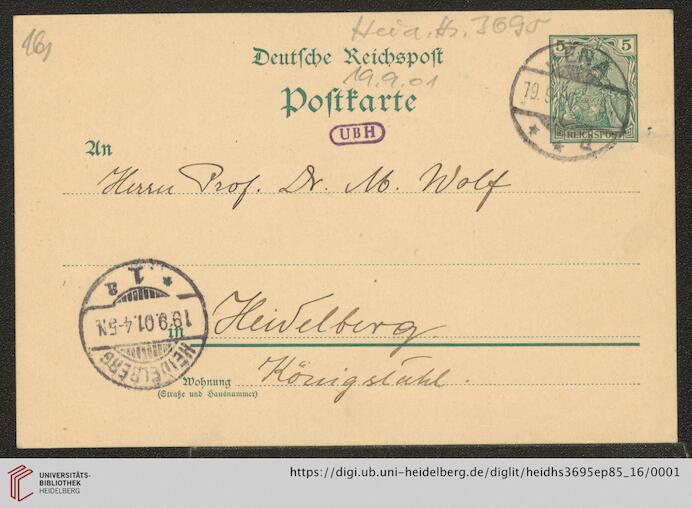 161
Heid. Hs. 3695
Deutsche Reichspost
19.9.01
Postkarte
UBH
5 5
REICHSPOST
JENA
19.
* * d
An
Herrn Prof. Dr. M. Wolf
* 1. a
19.9.01.4-5N.
HEIDELBERG
in Heidelberg.
Wohnung Königstuhl.
(Straße und Hausnummer)
UNIVERSITÄTS-
BIBLIOTHEK
HEIDELBERG
https://digi.ub.uni-heidelberg.de/diglit/heidhs3695ep85_16/0001